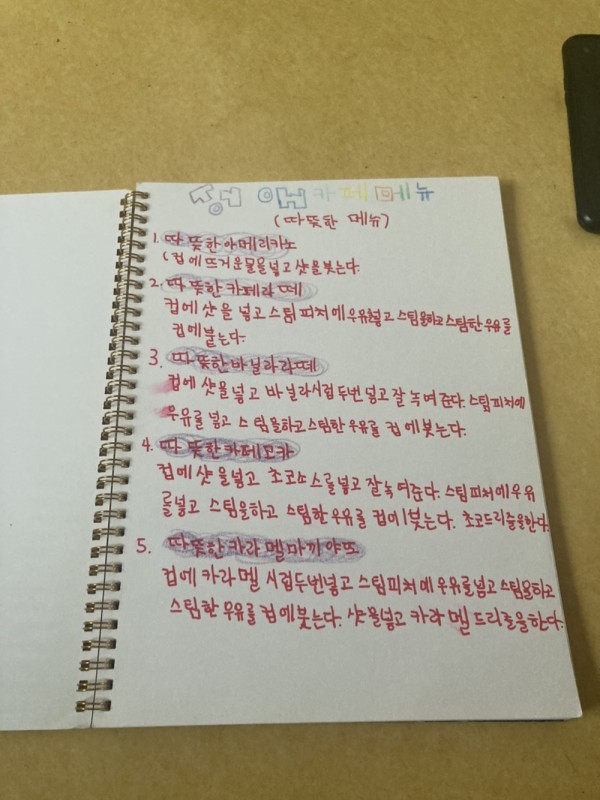 카페메뉴
(따뜻한 메뉴)
1. 따뜻한 아메리카노
(컵에 뜨거운물을 넣고 샷을 붓는다.
2. 따뜻한 카페라떼
컵에 샷을 넣고 스팀피처에 우유를넣고 스팀을하고 스팀한 우유를
컵에 붙는다.
3. 따뜻한 바닐라라떼
컵에 샷을 넣고 바닐라시럽 두번 넣고 잘 녹여준다. 스팀피처에
우유를 넣고 스팀을하고 스팀한 우유를 컵에 붓는다.
4. 따뜻한 카페모카
컵에 샷을 넣고 초코소스를넣고 잘녹여준다. 스팀피처에 우유
를넣고 스팀을하고 스팀한 우유를 컵에 붓는다. 초코드리즐을한다.
5. 따뜻한 카라멜마끼야또
컵에 카라멜 시럽두번넣고 스팀피처에 우유를 넣고 스팀을하고
스팀한 우유를 컵에 붓는다. 샷을넣고 카라멜 드리즐을한다.